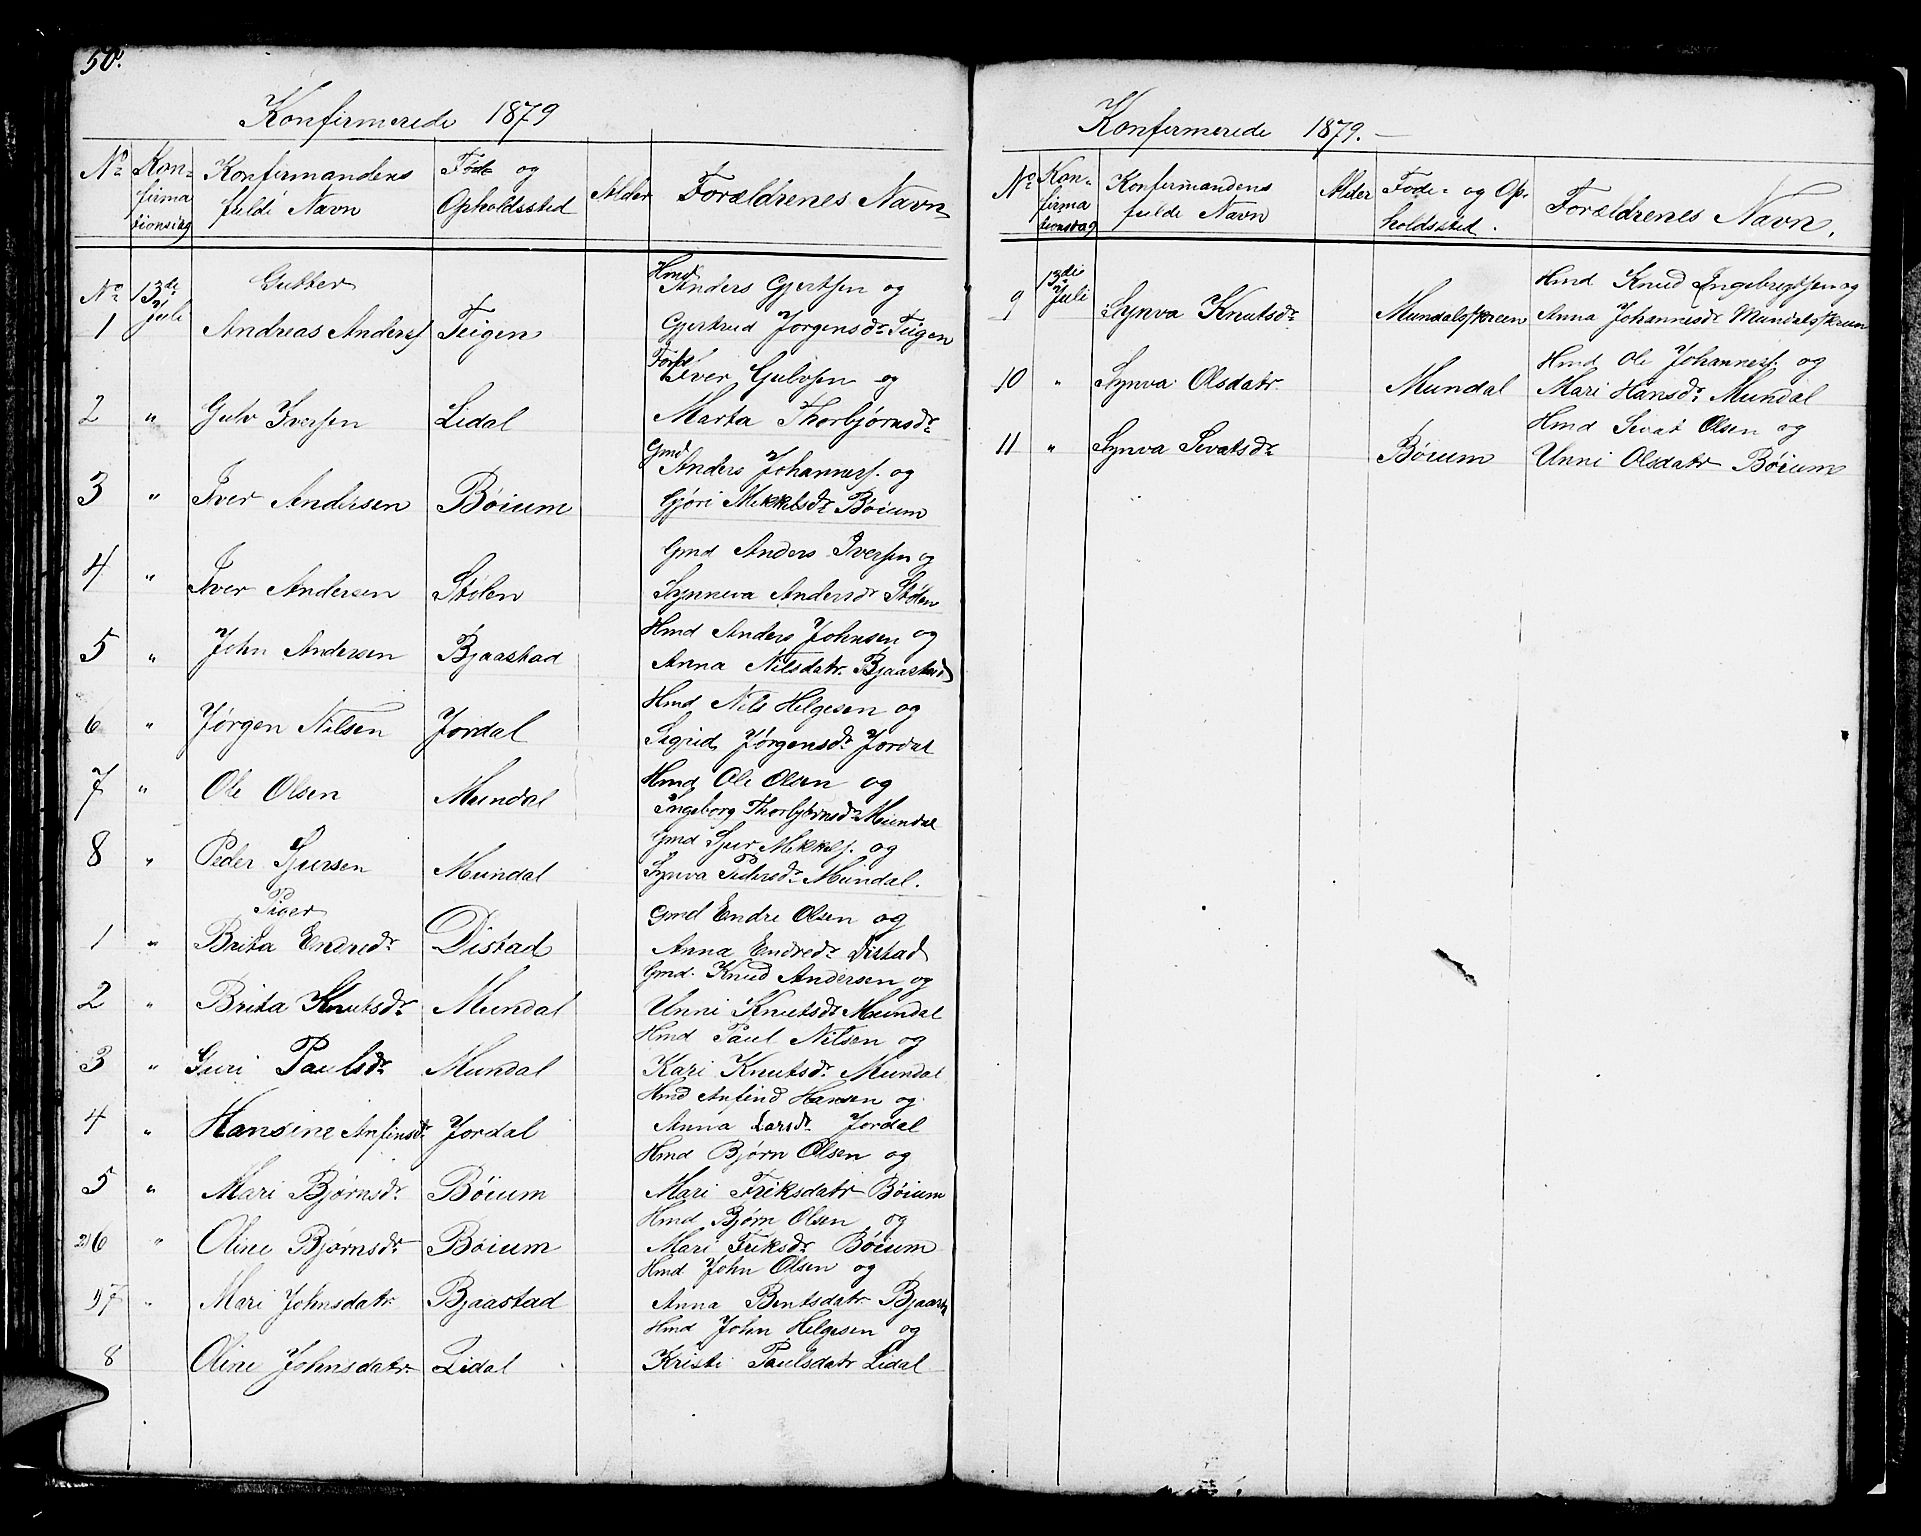 50.
Konfirmerede 1879
No Konfirmationsdag Konfirmandens fulde Navn Føde og Opholdssted Alder Forældrenes Navn
Gutter
No 1 13de Juli Andreas Anders Teigen Hmd Anders Gjertsen og
Gjertrud Jørgensdr Teigen
2 " Gulv Iversen Lidal Iver Gulvsen og
Marta Thorbjørnsdr
3 " Iver Andersen Bøium Gmd Anders Johannesf. og
Gjøri Mikkelsdr Bøium
4 " Iver Andersen Stølen Gmd Anders Iversen og
Synneva Andersdr Stølen
5 " John Andersen Bjaastad Hmd Anders Johnsen og
Anna Nilsdatr Bjaastad
6 " Jørgen Nilsen Jordal Hmd Nils Helgesen og
Sigrid Jørgensdr Jordal
7 " Ole Olsen Mundal Hmd Ole Olsen og
Ingeborg Thorbjørnsdr Mundal
8 " Peder Sjursen Mundal Gmd Sjur Mikkels. og
Synva Pedersdr Mundal.
Piger
1 " Brita Endredr Distad Gmd Endre Olsen og
Anna Endredr Distad
2 " Brita Knutsdr Mundal Gmd. Knud Andersen og
Unni Knutsdr Mundal
3 " Guri Paulsdr Mundal Hmd Paul Nilsen og
Kari Knutsdr Mundal
4 " Hansine Anfinsdr Jordal Hmd Anfind Hansen og
Anna Larsdr Jordal
5 " Mari Bjørnsdr Bøium Hmd Bjørn Olsen og
Mari Friksdatr Bøium
6 " Oline Bjørnsdr Bøium Hmd Bjørn Olsen og
Mari Friksdr Bøium
7 " Mari Johnsdatr Bjaastad Hmd John Olsen og
Anna Bentsdatr Bjaast
8 Oline Johnsdatr Lidal Hmd John Helgesen og
Kristi Paulsdatr Lidal
Konfirmerede 1879.
No Konfirmationsdag Konfirmandens fulde Navn Alder Føde- og Opholdssted. Forældrenes Navn.
9 13de Juli Synva Knutsdr Mundalsskreen Hmd Knud Ingebrigtsen og
Anna Johannesdr Mundalsskreen
10 " Synva Olsdatr Mundal Hmd Ole Johannesf. og
Mari Hansdr Mundal
11 " Synva Sevatsdr Bøium Hmd Sevat Olsen og
Unni Olsdatr Bøium